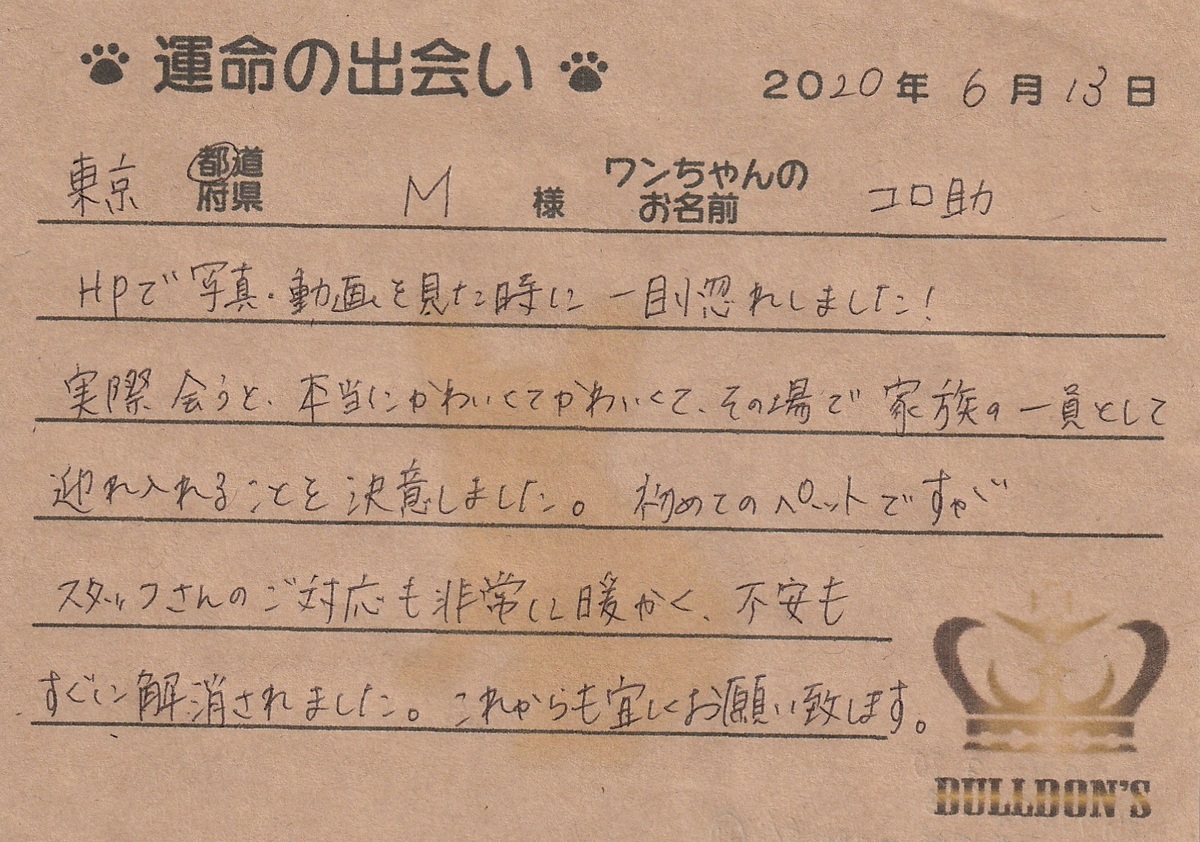 運命の出会い
2020年 6月 13日
東京 都道府県 M 様 ワンちゃんのお名前 コロ助
HPで写真・動画を見た時に 一目惚れしました!
実際会うと、本当にかわいくてかわいくて、その場で家族の一員として
迎れ入れることを決意しました。 初めてのペットですが
スタッフさんのご対応も非常に暖かく、不安も
すぐに解消されました。これからも宜しくお願い致します。
BULLDON'S